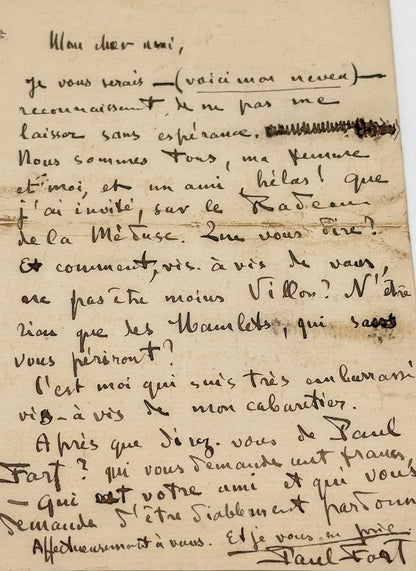 Mon cher ami,
Je vous serais — (voici mon neveu) —
reconnaissant, de ne pas me
laisser sans espérance.
Nous sommes tous, ma femme
et moi, et un ami, hélas! que
j'ai invité, sur le Radeau
de la Méduse. Que vous dire?
Et comment, vis-à-vis de vous,
ne pas être moins Villon? N'être
rien que des Hamlets, qui sans
vous périront?
C'est moi qui suis très embarrassé
vis-à-vis de mon cabaretier.
Après que direz-vous de Paul
Fort? qui vous demande francs,
— Qui est votre ami et qui vous
demande d'être diablement pardonn
Affectueusement à vous. Et je vous en prie
Paul Fort